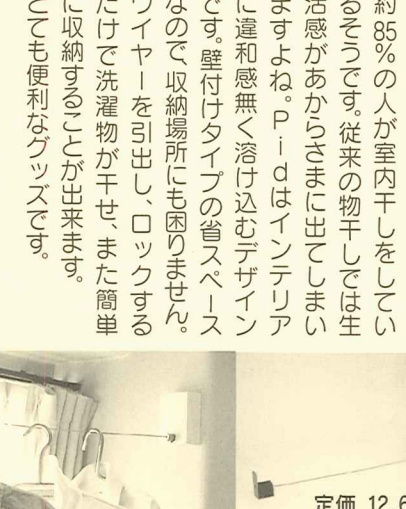 約85%の人が室内干しをしてい
るそうです。従来の物干しでは生
活感があからさまに出てしまい
ますよね。Pidはインテリア
に違和感無く溶け込むデザイン
です。壁付けタイプの省スペース
なので、収納場所にも困りません。
ワイヤーを引出し、ロックする
だけで洗濯物が干せ、また簡単
に収納することが出来ます。
とても便利なグッズです。
定価 12,6